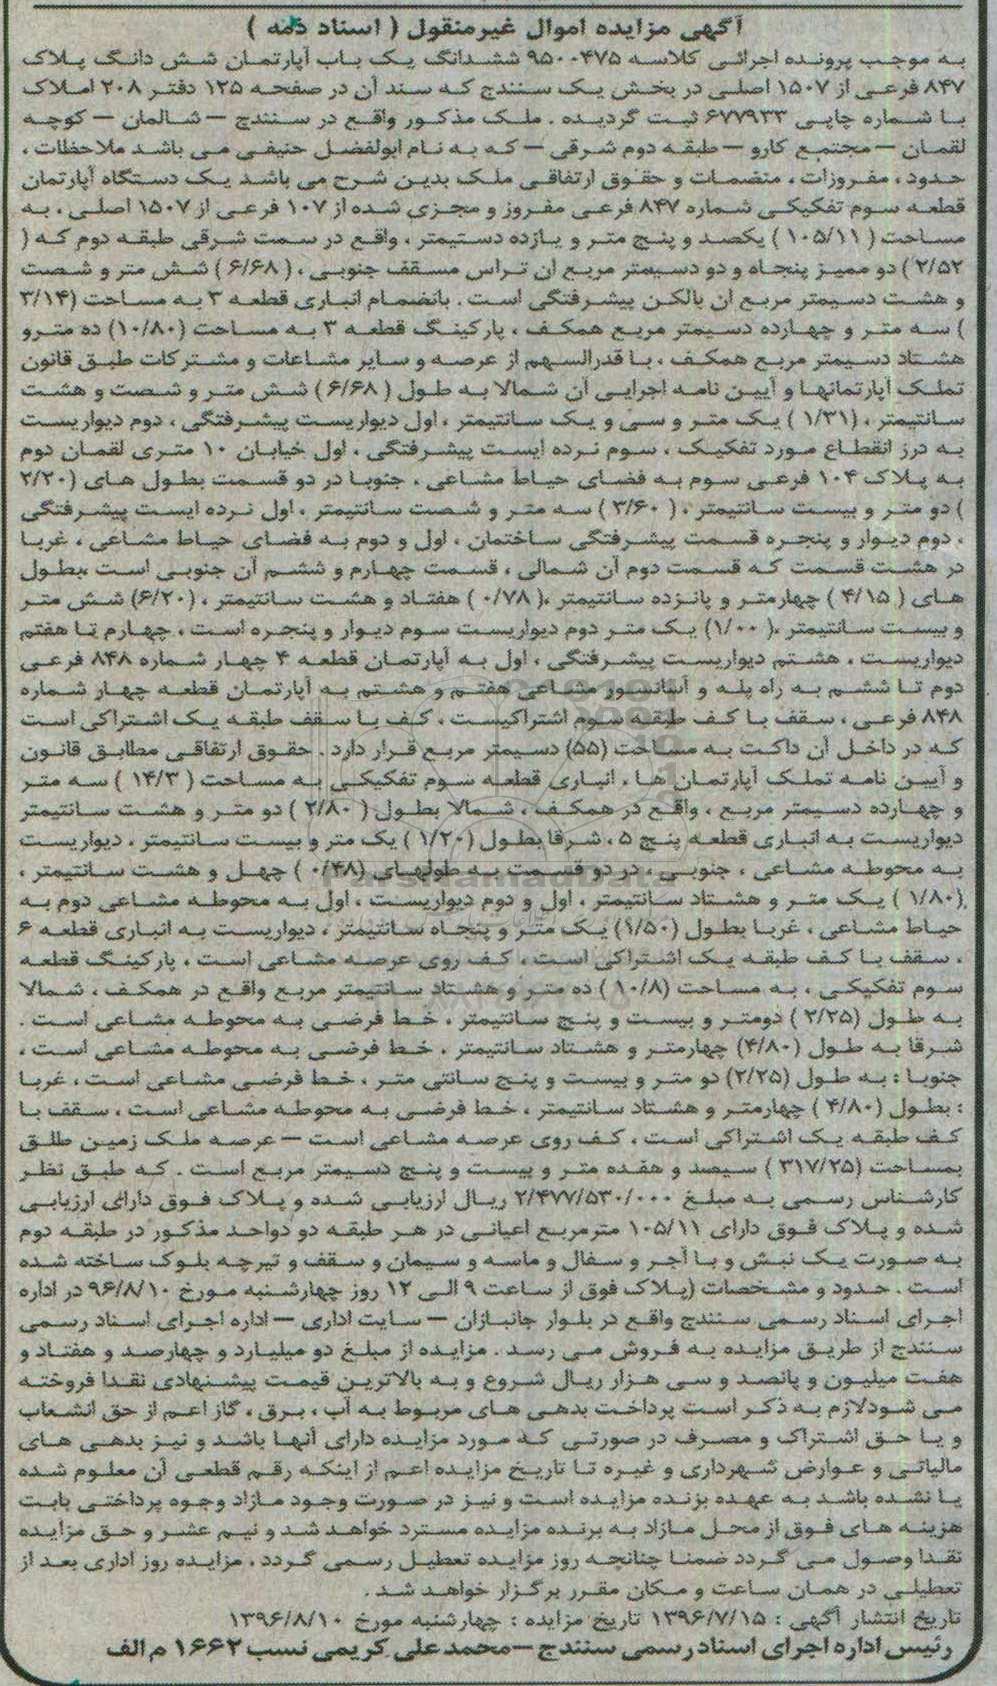 آگهی مزایده اموال غیرمنقول ( اسناد ذمه )
به موجب پرونده اجرائی کلاسه ۹۵۰۰۴۷۵ ششدانگ یک باب آپارتمان شش دانگ پلاک
۸۴۷ فرعی از ۱۵۰۷ اصلی در بخش یک سنندج که سند آن در صفحه ۱۲۵ دفتر ۲۰۸ املاک
با شماره چاپی ۶۷۷۹۳۳ ثبت گردیده . ملک مذکور واقع در سنندج – شالمان – کوچه
لقمان – مجتمع کارو – طبقه دوم شرقی – که به نام ابولفضل حنیفی می باشد ملاحظات ،
حدود ، مفروزات ، منضمات و حقوق ارتفاقی ملک بدین شرح می باشد یک دستگاه آپارتمان
قطعه سوم تفکیکی شماره ۸۴۷ فرعی مفروز و مجزی شده از ۱۰۷ فرعی از ۱۵۰۷ اصلی ، به
مساحت ( ۱۰۵/۱۱ ) یکصد و پنج متر و یازده دستیمتر ، واقع در سمت شرقی طبقه دوم که (
۲/۵۲ ) دو ممیز پنجاه و دو دسیمتر مربع ان تراس مسقف جنوبی ، ( ۶/۶۸ ) شش متر و شصت
و هشت دسیمتر مربع ان بالکن پیشرفتگی است . بانضمام انباری قطعه ۳ به مساحت (۳/۱۴
) سه متر و چهارده دسیمتر مربع همکف ، پارکینگ قطعه ۳ به مساحت (۱۰/۸۰) ده مترو
هشتاد دسیمتر مربع همکف ، با قدرالسهم از عرصه و سایر مشاعات و مشترکات طبق قانون
تملک آپارتمانها و آیین نامه اجرایی آن شمالا به طول ( ۶/۶۸ ) شش متر و شصت و هشت
سانتیمتر ، (۱/۳۱ ) یک متر و سی و یک سانتیمتر ، اول دیواریست پیشرفتگی ، دوم دیواریست
به درز انقطاع مورد تفکیک ، سوم نرده ایست پیشرفتگی ، اول خیابان ۱۰ متری لقمان دوم
به پلاک ۱۰۴ فرعی سوم به فضای حیاط مشاعی ، جنوبا در دو قسمت بطول های (۲/۲۰
) دو متر و بیست سانتیمتر ، ( ۳/۶۰ ) سه متر و شصت سانتیمتر ، اول نرده ایست پیشرفتگی
، دوم دیوار و پنجره قسمت پیشرفتگی ساختمان ، اول و دوم به فضای حیاط مشاعی ، غربا
در هشت قسمت که قسمت دوم آن شمالی ، قسمت چهارم و ششم آن جنوبی است ،بطول
های ( ۴/۱۵ ) چهارمتر و پانزده سانتیمتر ،( ۰/۷۸ ) هفتاد و هشت سانتیمتر ، (۶/۲۰) شش متر
و بیست سانتیمتر ،( ۱/۰۰) یک متر دوم دیواریست سوم دیوار و پنجره است ، چهارم تا هفتم
دیواریست ، هشتم دیواریست پیشرفتگی ، اول به آپارتمان قطعه ۴ چهار شماره ۸۴۸ فرعی
دوم تا ششم به راه پله و آسانسور مشاعی هفتم و هشتم به آپارتمان قطعه چهار شماره
۸۴۸ فرعی ، سقف با کف طبقه سوم اشتراکیست ، کف با سقف طبقه یک اشتراکی است
که در داخل آن داکت به مساحت (۵۵) دسیمتر مربع قرار دارد . حقوق ارتفاقی مطابق قانون
و آیین نامه تملک آپارتمان ها . انباری قطعه سوم تفکیکی به مساحت ( ۱۴/۳ ) سه متر
و چهارده دسیمتر مربع ، واقع در همکف ، شمالا بطول ( ۲/۸۰ ) دو متر و هشت سانتیمتر
دیواریست به انباری قطعه پنج ۵ ، شرقا بطول (۱/۲۰ ) یک متر و بیست سانتیمتر ، دیواریست
به محوطه مشاعی ، جنوبی ، در دو قسمت به طولهای (۰/۴۸ ) چهل و هشت سانتیمتر ،
(۱/۸۰ ) یک متر و هشتاد سانتیمتر ، اول و دوم دیواریست ، اول به محوطه مشاعی دوم به
حیاط مشاعی ، غربا بطول (۱/۵۰) یک متر و پنجاه سانتیمتر ، دیواریست به انباری قطعه ۶
، سقف با کف طبقه یک اشتراکی است ، کف روی عرصه مشاعی است ، پارکینگ قطعه
سوم تفکیکی ، به مساحت (۱۰/۸ ) ده متر و هشتاد سانتیمتر مربع واقع در همکف ، شمالا
به طول (۲/۲۵ ) دومتر و بیست و پنج سانتیمتر ، خط فرضی به محوطه مشاعی است .
شرقا به طول (۴/۸۰) چهارمتر و هشتاد سانتیمتر ، خط فرضی به محوطه مشاعی است ،
جنوبا : به طول (۲/۲۵) دو متر و بیست و پنج سانتی متر ، خط فرضی مشاعی است ، غربا
: بطول (۴/۸۰ ) چهارمتر و هشتاد سانتیمتر ، خط فرضی به محوطه مشاعی است ، سقف با
کف طبقه یک اشتراکی است ، کف روی عرصه مشاعی است – عرصه ملک زمین طلق
بمساحت (۳۱۷/۲۵ ) سیصد و هفده متر و بیست و پنج دسیمتر مربع است . که طبق نظر
کارشناس رسمی به مبلغ ۲/۴۷۷/۵۳۰/۰۰۰ ریال ارزیابی شده و پلاک فوق دارای ارزیابی
شده و پلاک فوق دارای ۱۰۵/۱۱ مترمربع اعیانی در هر طبقه دو دواحد مذکور در طبقه دوم
به صورت یک نبش و با آجر و سفال و ماسه و سیمان و سقف و تیرچه بلوک ساخته شده
است . حدود و مشخصات (پلاک فوق از ساعت ۹ الی ۱۲ روز چهارشنبه مورخ ۹۶/۸/۱۰ در اداره
اجرای اسناد رسمی سنندج واقع در بلوار جانبازان – سایت اداری – اداره اجرای اسناد رسمی
سنندج از طریق مزایده به فروش می رسد . مزایده از مبلغ دو میلیارد و چهارصد و هفتاد و
هفت میلیون و پانصد و سی هزار ریال شروع و به بالاترین قیمت پیشنهادی نقدا فروخته
می شودلازم به ذکر است پرداخت بدهی های مربوط به آب ، برق ، گاز اعم از حق انشعاب
و یا حق اشتراک و مصرف در صورتی که مورد مزایده دارای آنها باشد و نیز بدهی های
مالیاتی و عوارض شهرداری و غیره تا تاریخ مزایده اعم از اینکه رقم قطعی آن معلوم شده
یا نشده باشد به عهده بزنده مزایده است و نیز در صورت وجود مازاد وجوه پرداختی بابت
هزینه های فوق از محل مازاد به برنده مزایده مسترد خواهد شد و نیم عشر و حق مزایده
نقدا وصول می گردد ضمنا چنانچه روز مزایده تعطیل رسمی گردد ، مزایده روز اداری بعد از
تعطیلی در همان ساعت و مکان مقرر برگزار خواهد شد .
تاریخ انتشار آگهی : ۱۳۹۶/۷/۱۵ تاریخ مزایده : چهارشنبه مورخ ۱۳۹۶/۸/۱۰
رئیس اداره اجرای اسناد رسمی سنندج – محمد علی کریمی نسب ۱۶۶۲ م الف